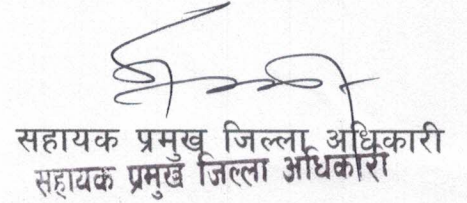 सहायक प्रमुख जिल्ला अधिकारी
सहायक प्रमुख जिल्ला अधिकारी